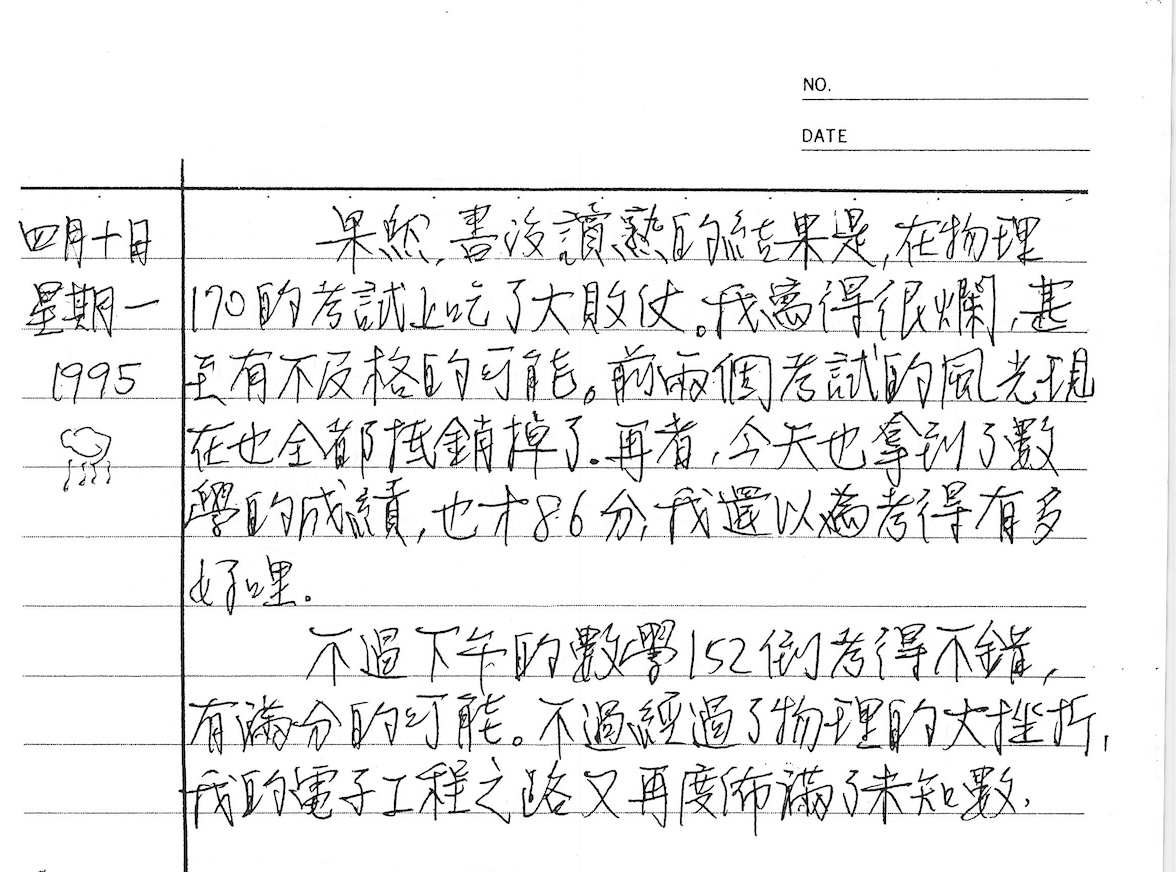 NO.
DATE
四月十日
星期一
1995
果然,書沒讀熟的結果是,在物理
170的考試上吃了大敗仗。我寫得很爛,甚
至有不及格的可能。前兩個考試的風光現
在也全都抵銷掉了.再者,今天也拿到了數
學的成績,也才86分,我還以為考得有多
好哩.
不過下午的數學152倒考得不錯,
有滿分的可能。不過經過了物理的大挫折,
我的電子工程之路又再度佈滿了未知數.